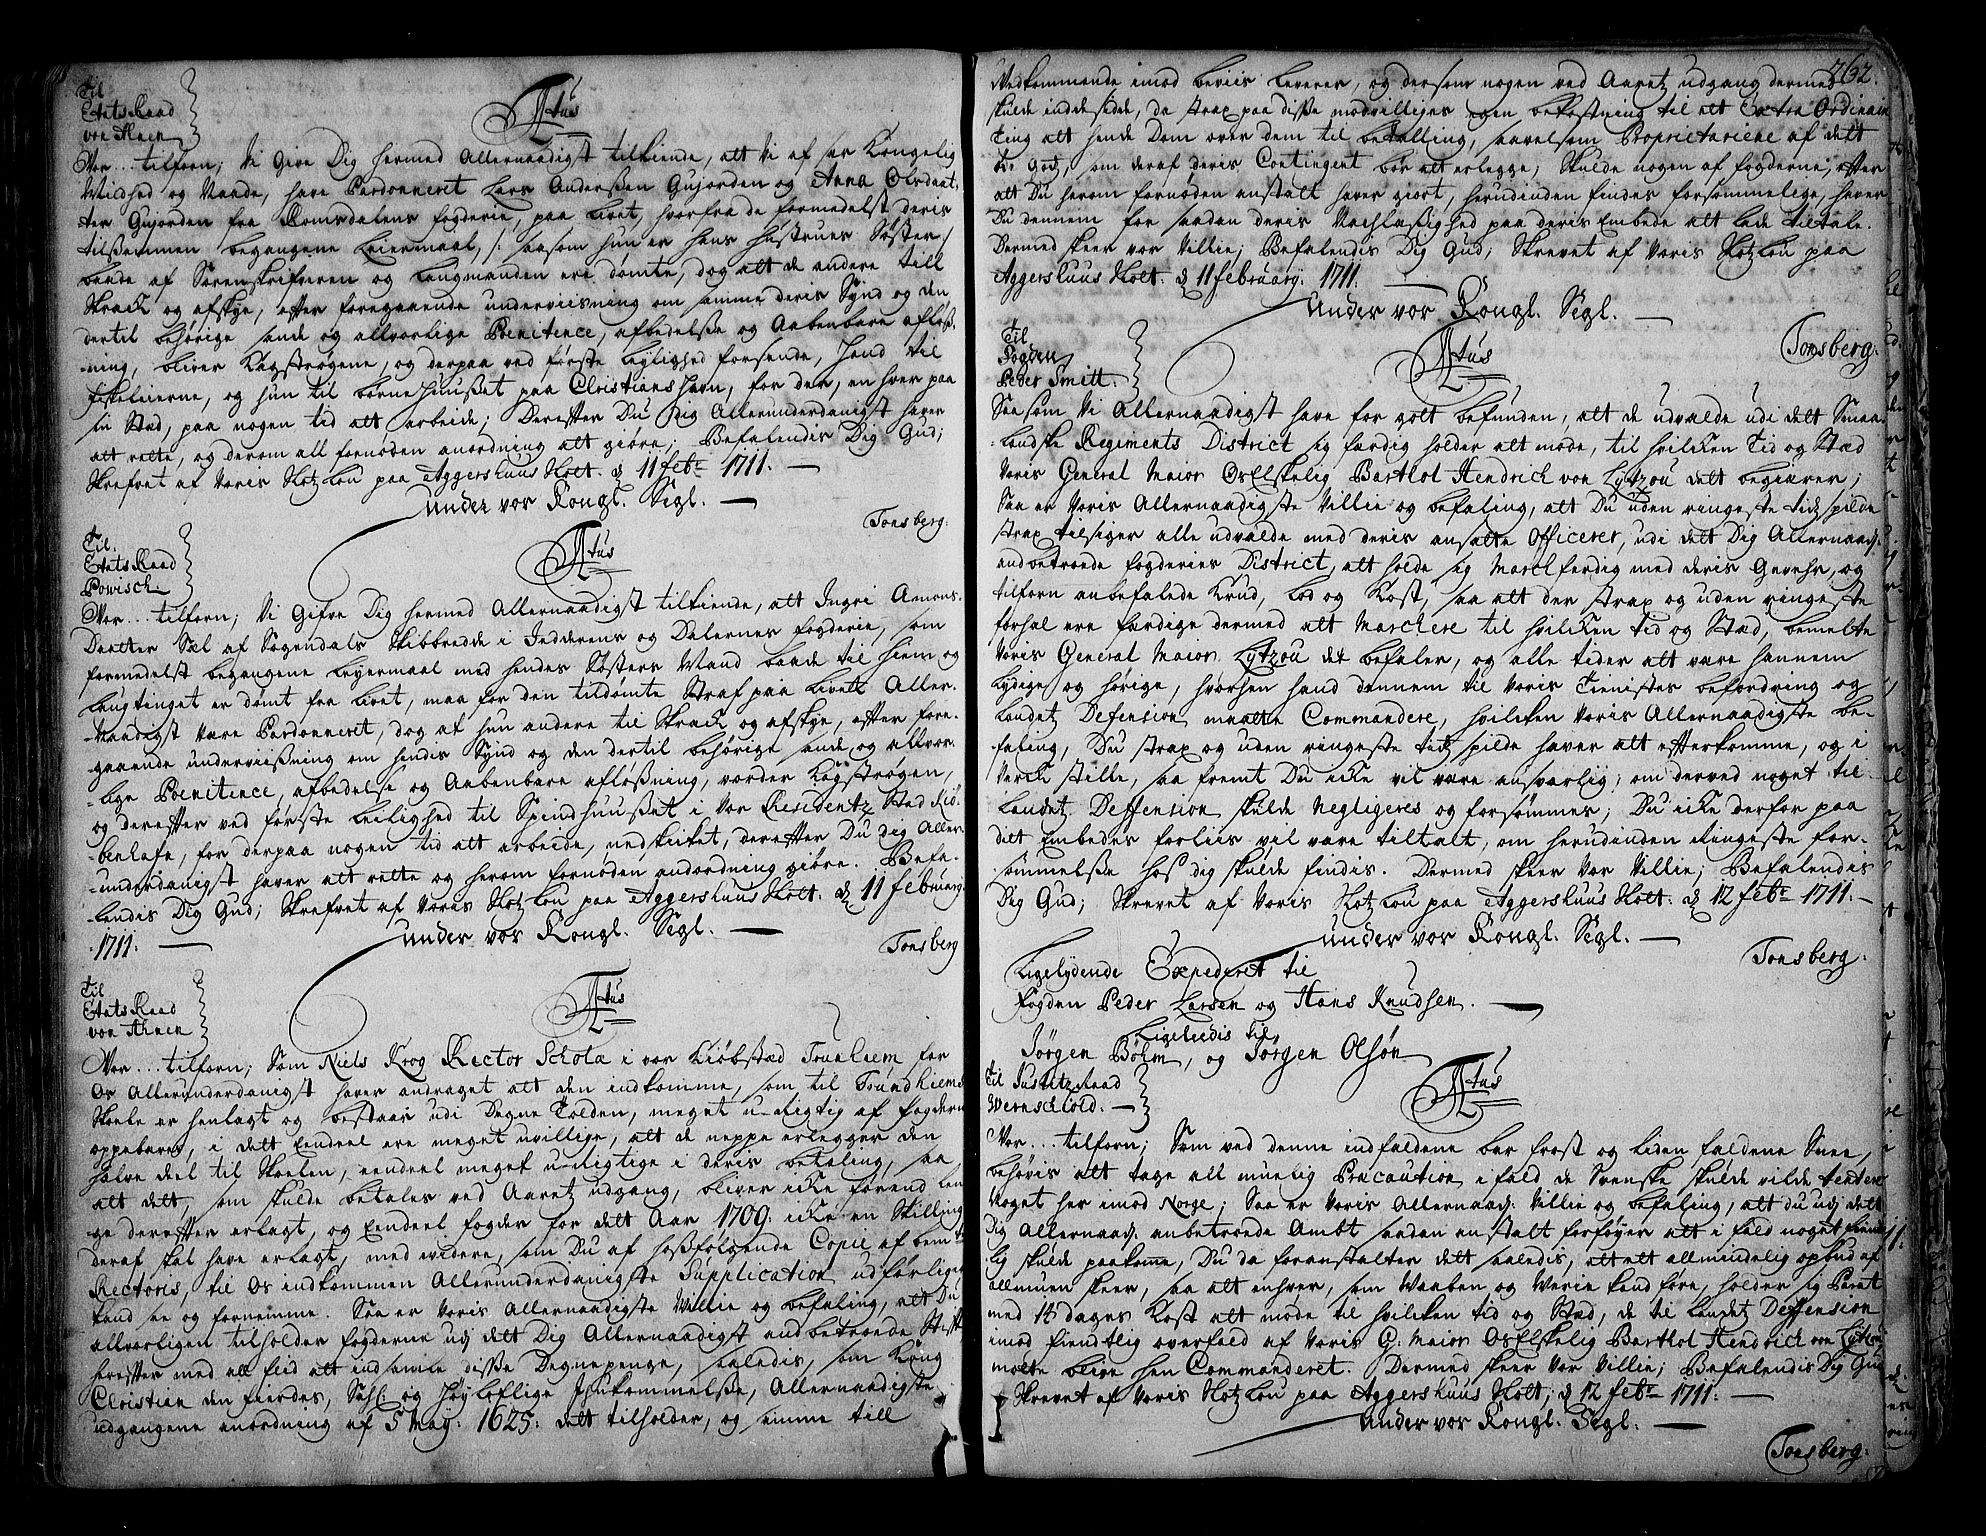 Til
Etats Raad
von Ahnen
Atus
Vor... tilforn; Vi Give Dig hermed Allernaadigst tilkiende, att Vi af sær Kongelig
Mildhed og Naade, have Pardonneret Lars Anderssen Gujorden og Anna Olsdaat,
ter Gujorden fra Romsdalens fogderie, paa livet, hvorfra de formedelst deris
tilsammen begangene Leiermaal, /: saasom hun er hans hustrues Søster /
baade af Sorenskrifveren og Laugmanden ere dømte, dog att de andre till
Skræck og afskye, efter foregaaende underviisning om samme deris Synd og den
dertil behørige sande og allvorlige Poenitence, afbedelsse og Aabenbare afløß-
-ning, bliver Kagstrøgene, og derpaa ved første leylighed forsende, hand til
fiskeleierne, og hun til børnehuußet paa Christianshavn, for der, en hver paa
sin Stæd, paa nogen tid att arbeide; Derefter Du dig Allerunderdanigst haver
att rette, og derom all fornøden anordning att giøre; Befalendis Dig Gud;
Skrefvet af Voris Slotzlou paa Aggershuus Slott. d 11 feb: 1711. —
Under vor Kongl. Segl. —
Tonsberg.
Til.
Etats Raad
Powisch.
Atus
Vor... tilforn; Vi Gifve Dig hermed Allernaadigst tilkiende, att Ingri Amons-
Daatter Sæl af Sogendals Skibbrædde i Jedderens og Dalernes fogderie, som
formedelst begangene leyermaal med hendes Søsters Mand baade til hiem og
Laugtinget er dømt fra livet, maa for den tildømte Straf paa livet Aller-
-naadigst være Pardonneret, dog at hun andere til Skræck og afskye, efter fore-
gaaende underviißning om hindis Synd og den dertil behørige sande, og allvor-
-lige Poenitence, afbedelse og Aabenbare afløßning, vorder Kagstrøgen,
og derefter ved første leilighed til Spindhuußet i Vor Residentz Stad Kiø-
-benhafn, for derpaa nogen tid att arbeide, nedskicket, derefter Du dig Aller-
-underdanigst haver att rette og herom fornøden anordning giøre. Befa-
-lendis Dig Gud; Skrefvet af Voris Slotzlou paa Aggershuus Slott. d 11 februarij
1711. —
Under vor Kongl. Segl. —
Tonsberg
Til
Etats Raad
von Ahnen
Atus
Vor... tilforn; Som Niels Krog Rector Schola i vor Kiøbstæd Trundhiem for
Os Allerunderdanigst haver andraget att den indkomme, som til Trundhiems
Skole er henlagt og bestaar udi Degne Tolden, meget u-rigtig af fogderne
oppebæres, i dett Eendeel ere meget uvillige, att de neppe erlegger den
halve deel til Skolen, eendeel meget u-rigtige i deris betaling, saa
att dett, som skulde betales ved Aaretz udgang, bliver icke forend len
ge derefter erlagt, og Eendeel fogder for dett Aar 1709. icke en Skilling
deraf skal have erlagt, med videre, som Du af hoßfølgende Copie af bemte
Rectoris, til Os indkommen Allerunderdanigste Supplication udførligen
kand see og fornemme. Saa er Voris Allernaadigste Villie og befaling, att Du
allvorligen tilholder fogderne udj dett Dig Allernaadigst andbetroede Stift
herefter med all flid att indsamle disse Degnepenge, saaledis, som Kong
Christian den fierdes, Sahl og Høyloflige Ihukommelsse, Allernaadigste
udgangene anordning af 5 May: 1625: dett tilholder, og samme till
762.
Vedkommende imod beviis leverer, og dersom nogen ved Aaretz udgang dermed
skulde inddesidde, da strax paa disse modvilliges egen bekostning til att Extra Ordinaire
Ting att hende Dom over dem til betalling, saavelsom Proprietariene af dett
... Godz, som deraf deris Contingent bør att erlegge; Skulde nogen af fogderne, efter
att Du herom fornøden anstalt haver giort, herudinden findes forsømmelige, haver
Du dennem for saadan deris Nachlaßighed paa deris Embede att lade tiltale.
Dermed skeer vor Villie; Befalendis Dig Gud; Skrevet af Voris Slotzlou paa
Aggershuus Slott. d 11 february. 1711. —
Under vor Kongl. Segl. —
Tonsberg.
Til
Fogden
Peder Smitt.
Atus
Saasom Vi Allernaadigst have for gott befunden, att de udvalde udi dett Smaa-
-lendske Regiments District sig færdig holder att møde, til hvilcken tid og Stæd
Voris General Maior Os Elskelig Barthol Hendrich von Lytzou dett begiærer;
Saa er Voris Allernaadigste Villie og befaling, att Du uden ringeste tidz spilde
strax tilsiger alle udvalde med deris ansatte Officerer, udi dett Dig Allernaads.
andbetroede fogderies District, att holde sig Marchferdig med deris Gevehr, og
tilforn anbefalede Krud, Lod og Kost, saa att der strax og uden ringeste
forhal ere færdige dermed att Marchere til hvilcken tid og Stæd, bemelte
Voris General Maior Lytzou det befaler, og alle tider att være hannem
lydige og hørige, hvorhen hand dennem til Voris Tienistes befordring og
Landet Defension maatte Commandere, hvilcken Voris Allernaadigste be-
-faling, Du strax og uden ringeste tidz spilde haver att efterkomme, og i
Verck stille, saa fremt Du icke vil være ansvarlig, om derved noget til
Landet Deffension skulde Negligeres og forsømmes; Du icke derfor paa
ditt Embedes forliis vil være tiltalt, om herudinden ringeste for-
-sømmelße hos dig skulde findis. Dermed skeer Vor Villie; Befalendis
Dig Gud; Skrevet af Voris Slotzlou paa Aggershuus Slott. d 12 feb: 1711. —
Under vor Kongl. Segl. —
Tonsberg.
Ligelydende Expederet til
Fogden Peder Larsen og Hans Knudsen. —
Ligeledis til
Jørgen Bøhm, og Jørgen Olsøn
Til Justitz Raad
Wernschiold. —
Atus
Vor... tilforn; Som ved denne indfaldene bar frost og liden faldene Snee,
behøvis att tage all muelig Præcaution i fald de Svenske skulde vilde tentere
Noget her imod Norge; Saa er Voris Allernaads. Villie og befaling, att du udj dett
Dig Allernaads. anbetroede Ambt saadan anstalt forføyer att i fald noget fiende
lig skulde paakomme, Du da foranstalter dett saaledis, att ett allmindelig opbud af
allmuen skeer, saa att enhver, som Waaben og Verie kand føre, holder sig Parat
med 14 dages Kost att møde til hvilcken tid og Stæd, de til Landet Deffension
imod fiendtlig overfald af Voris G. Maior Os Elskelig Barthol Hendrich von Lytzou
maatte blive hen Commanderet. Dermed skeer Vor Villie; Befalendis Dig Gud
Skrevet af Voris Slotzlou paa Aggershuus Slott; d 12 feb: 1711. —
Under vor Kongl. Segl. —
Tonsberg.